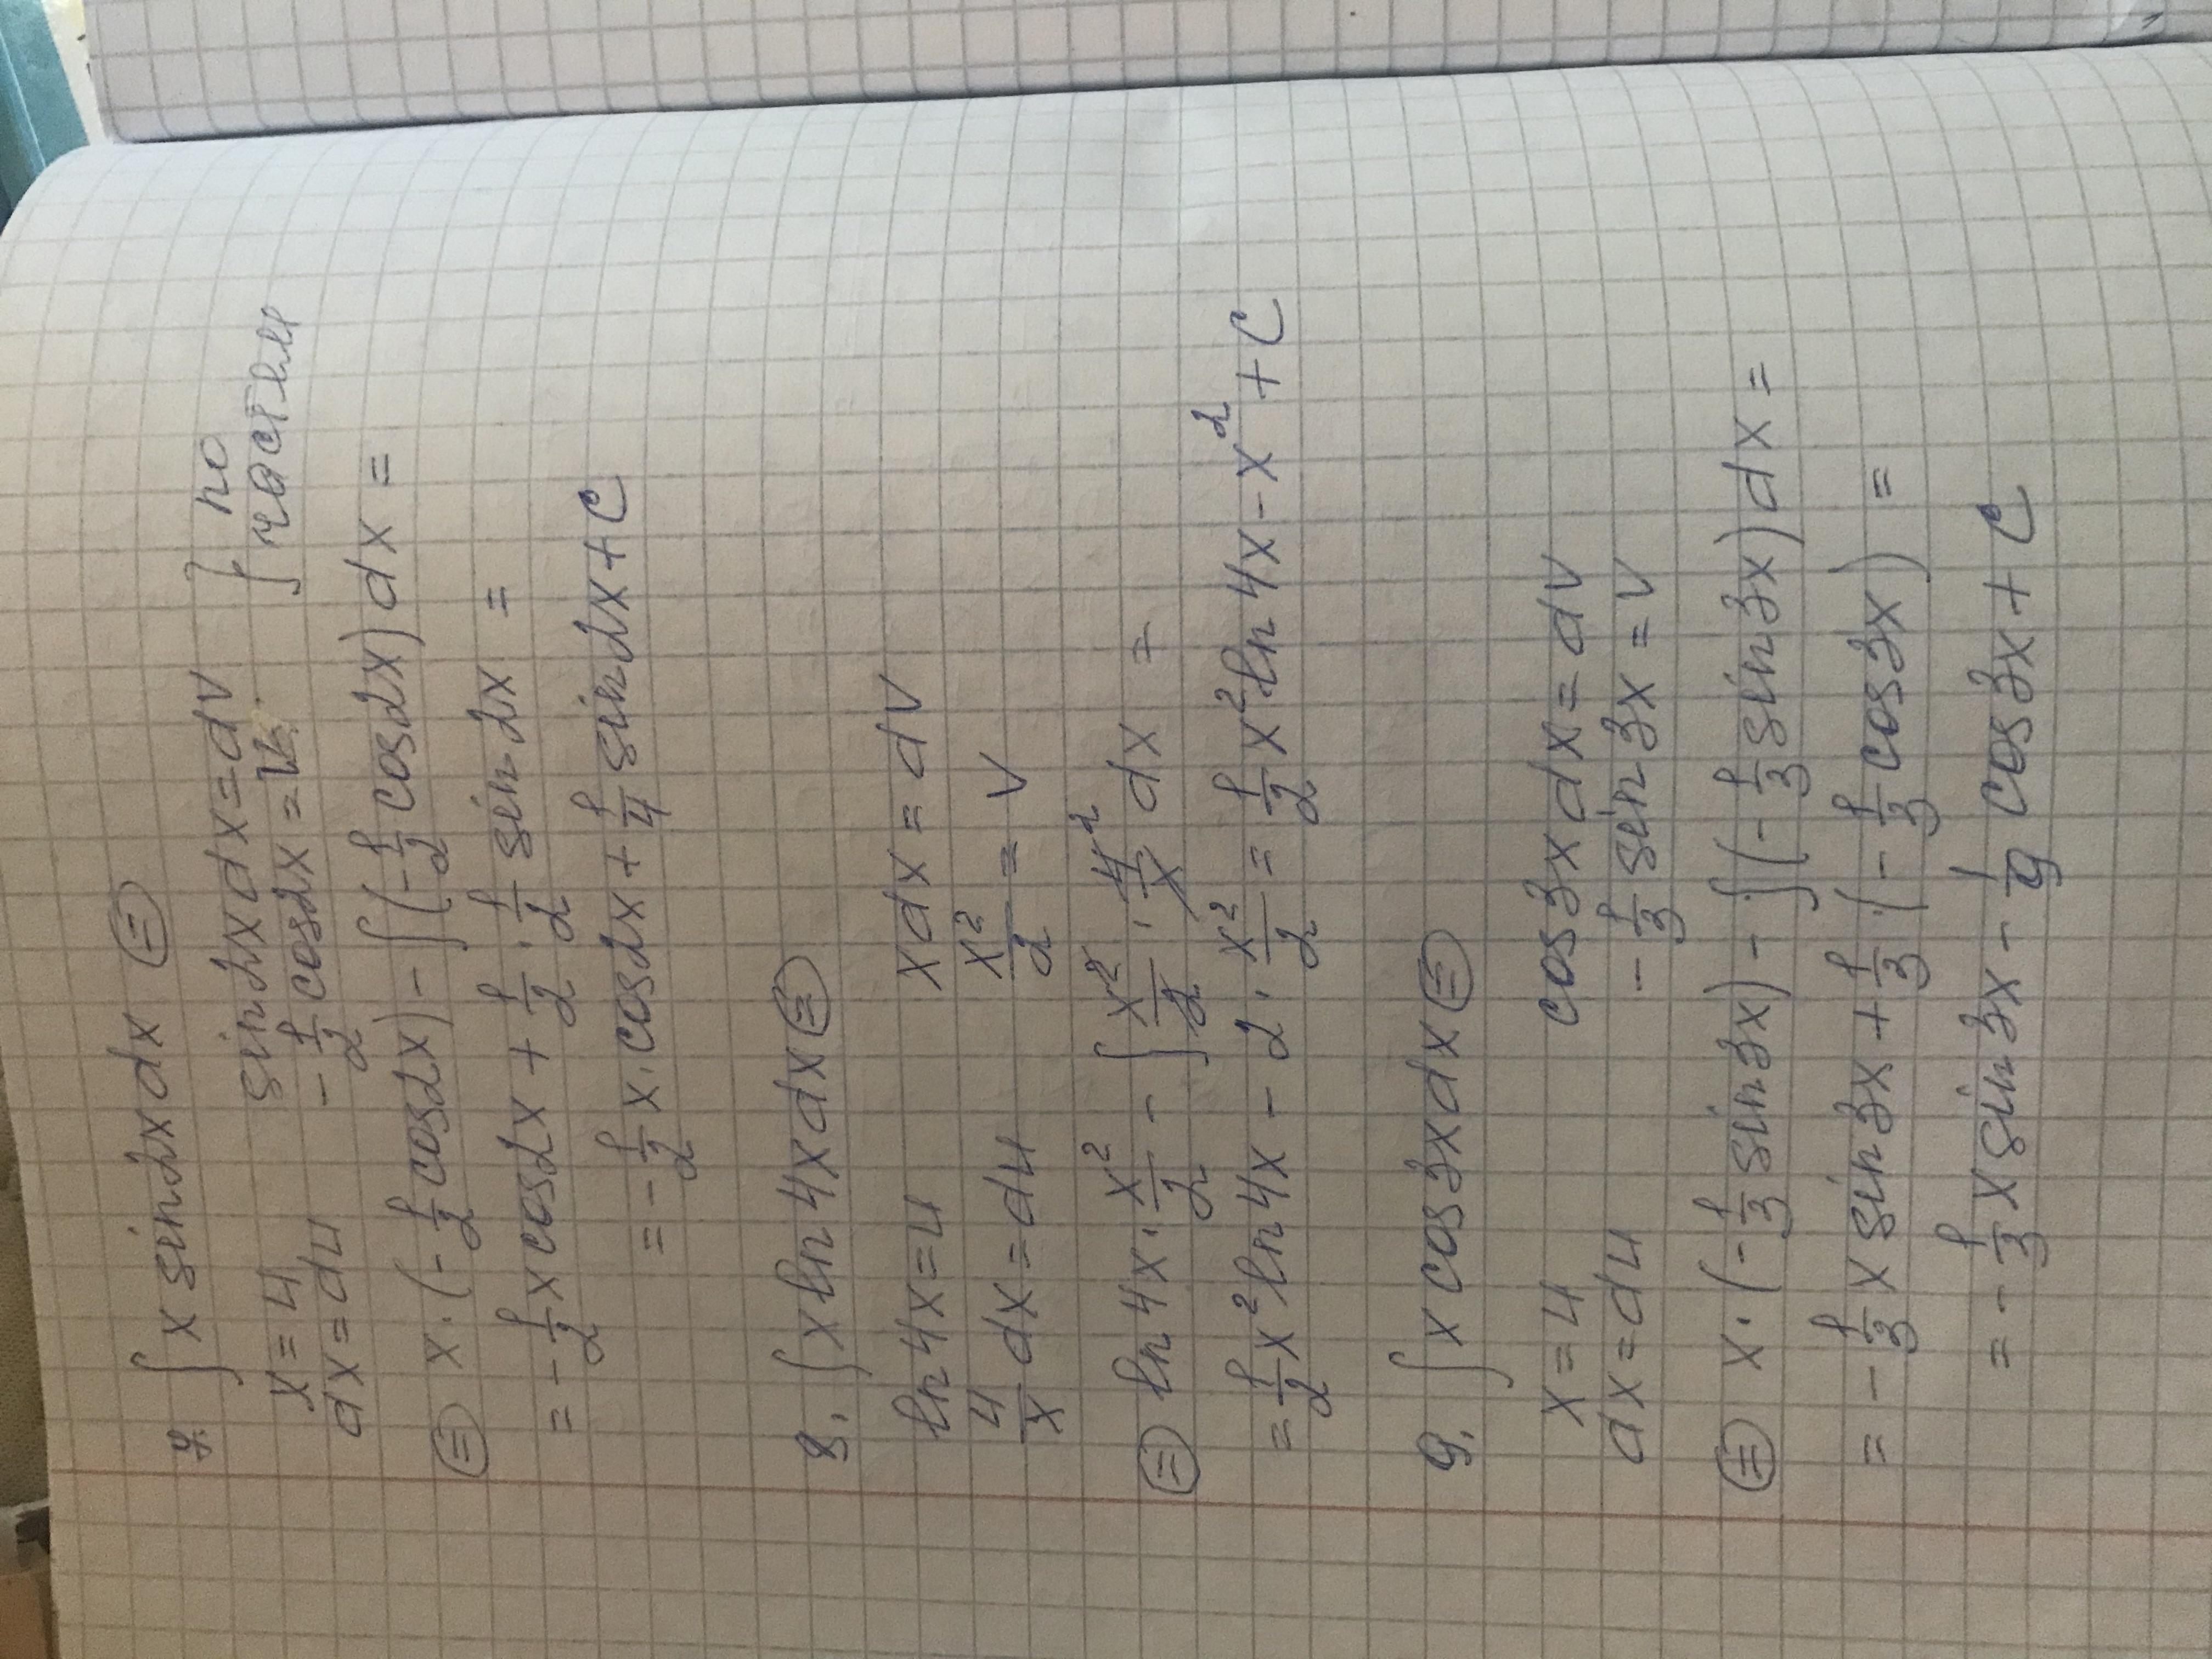 7. ∫ x sin2x dx ⊜
x = u sin2x dx = dv ∫ по
dx = du -1/2 cos2x = v. частям
⊜ x·(-1/2 cos2x) - ∫(-1/2 cos2x)dx =
= -1/2 x cos2x + 1/2 · 1/2 sin2x =
= -1/2 x·cos2x + 1/4 sin2x + C
8. ∫ x ln4x dx ⊜
ln4x = u xdx = dv
4/x dx = du x²/2 = v
⊜ ln4x · x²/2 - ∫ x²/2 · 4²/x dx =
= 1/2 x² ln4x - 2 · x²/2 = 1/2 x² ln4x - x² + C
9. ∫ x cos3x dx ⊜
x = u cos3x dx = dv
dx = du -1/3 sin3x = v
⊜ x·(-1/3 sin3x) - ∫(-1/3 sin3x)dx =
= -1/3 x sin3x + 1/3 ·(-1/3 cos3x) =
= -1/3 x sin3x - 1/9 cos3x + C